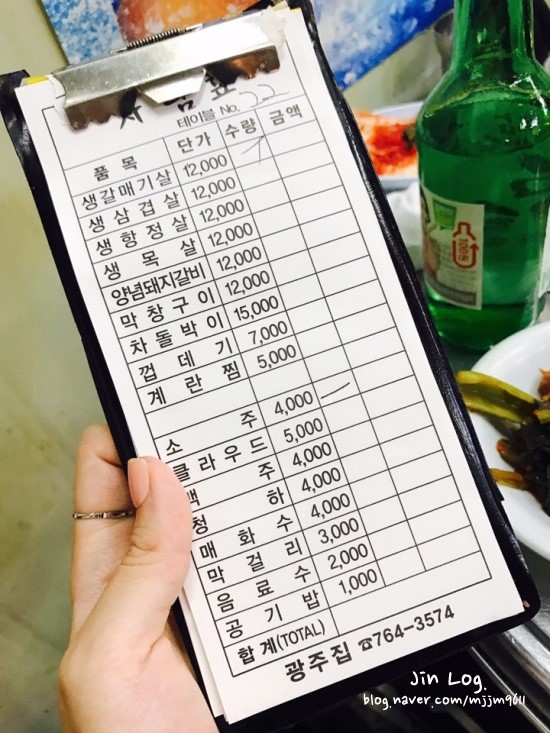 테이블 No. 22
품목 단가 수량 금액
생갈매기살 12,000
생삼겹살 12,000
생항정살 12,000
생목살 12,000
양념돼지갈비 12,000
막창구이 12,000
차돌박이 15,000
껍데기 7,000
계란찜 5,000
소주 4,000
클라우드 5,000
맥주 4,000
청하 4,000
매화수 4,000
막걸리 3,000
음료수 2,000
공기밥 1,000
합계(TOTAL)
광주집 ☎764-3574
Jin Log.
blog.naver.com/mjjm9611